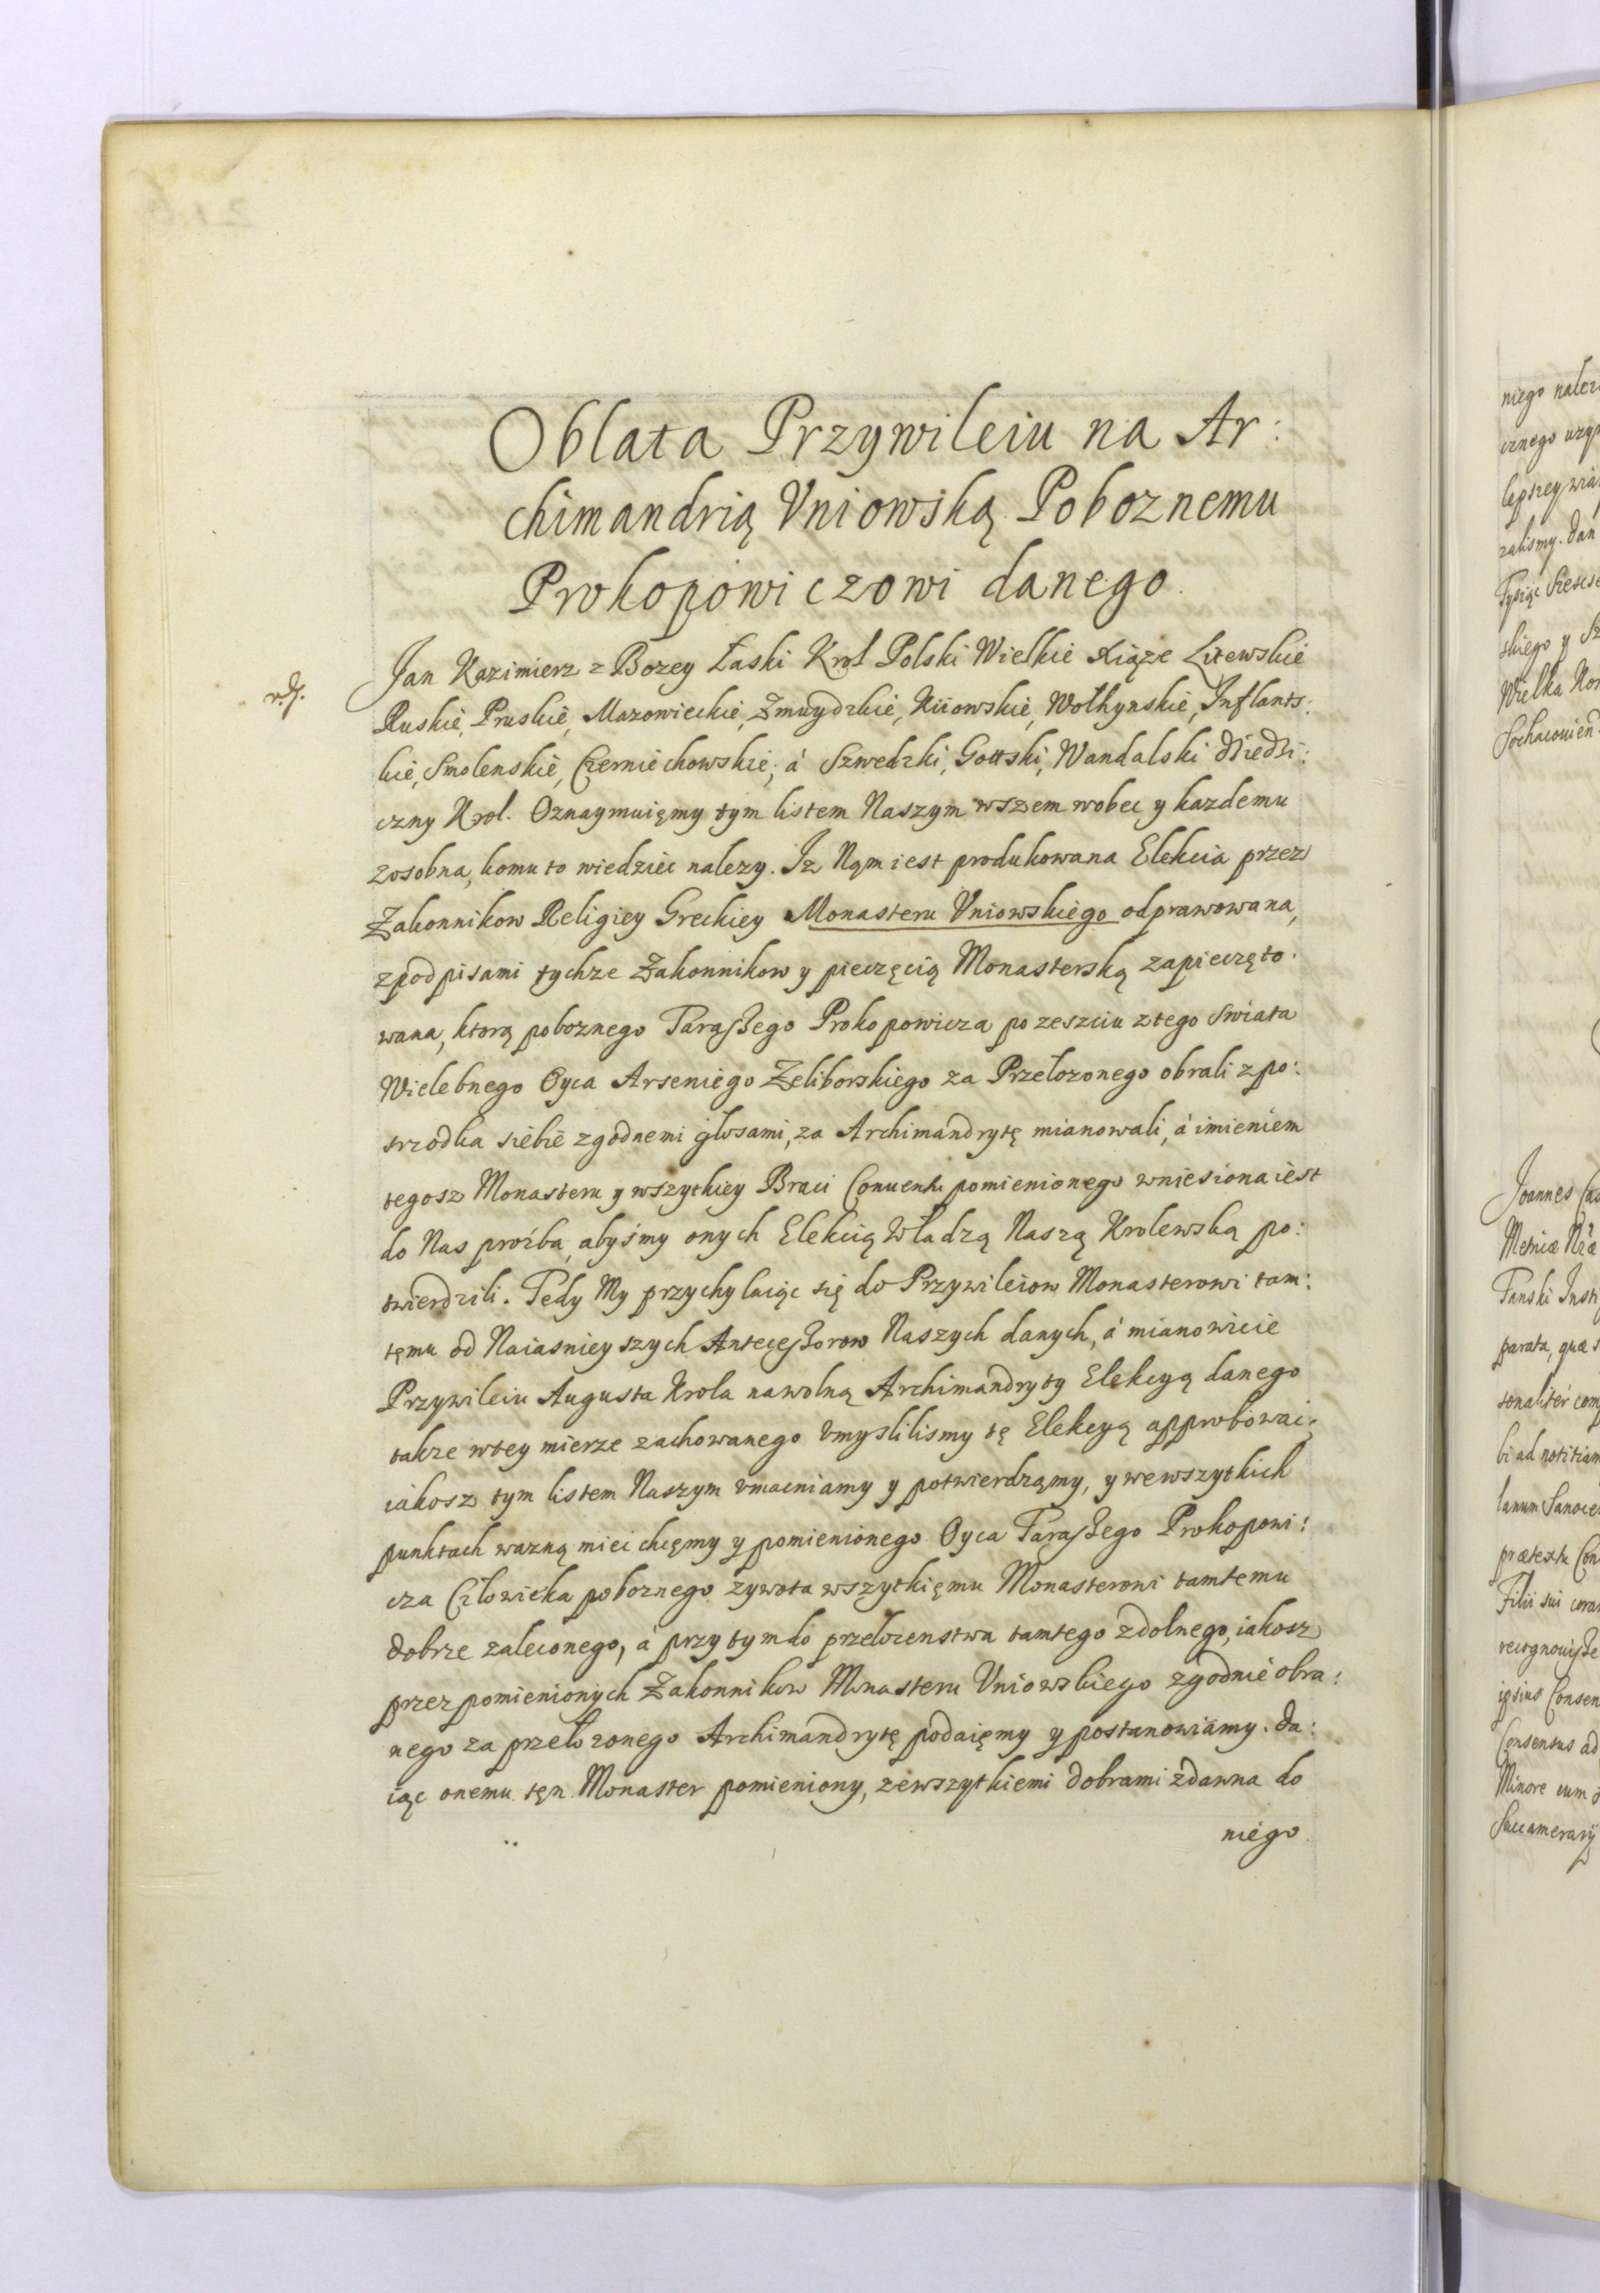 Oblata Przywileiu na Ar:
chimandrią Vniowską Poboznemu
Prokopowiczowi danego.
Jan Kazimierz z Bozey Łaski Krol Polski Wielkie Xiąze Litewskie
Ruskie, Pruskie, Mazowieckie, Zmuydzkie, Kiiowskie, Wołhynskie, Inflants:
kie, Smolenskie, Czerniechowskie; á Szwedzki, Gottski, Wandalski dziedzi:
czny Krol. Oznaymuięmy tym listem Naszym wszem wobec y kazdemu
zosobna, komu to wiedziec nalezy. Iz Nąm iest produkowana Elekcia przez
Zakonnikow Religiey Greckiey Monasteru Vniowskiego odprawowana,
z podpisami tychze Zakonnikow y pieczęcią Monasterską zapieczęto:
wana, ktorą poboznego Tarassego Prokopowicza po zeszciu z tego swiata
Wielebnego Oyca Arseniego Zeliborskiego za Przełozonego obrali z po:
srzodka siebie zgodnemi głosami, za Archimandrytę mianowali, á imieniem
tegosz Monasteru y wszytkiey Braci Conuentu pomienionego wniesiona iest
do Nas proźba, abyśmy onych Elekcią Władzą Naszą Krolewską po:
twierdzili. Tedy My przychylaiąc się do Przywileiow Monasterowi tam:
tęmu od Naiasnieyszych Antecessorow Naszych danych, á mianowicie
Przywileiu Augusta Krola na wolną Archimandryty Elekcyą danego
takze w tey mierze zachowanego vmyslilismy tę Elekcyą approbowac;
iakosz tym listem Naszym vmacniamy y potwierdząmy, y we wszytkich
punktach wazną miec chcęmy y pomienionego Oyca Tarassego Prokopowi:
cza Człowieka poboznego zywota wszytkięmu Monasterowi tamtemu
dobrze zaleconego, á przy tym do przełozenstwa tamtego zdolnego, iakosz
przez pomienionych Zakonnikow Monasteru Vniowskiego zgodnie obra:
nego za przełozonego Archimandrytę podaięmy y postanowiamy. da:
iąc onemu tęn Monaster pomieniony, ze wszytkiemi dobrami zdawna do
niego
niego
lepszey
zalismy. Dan
Tysiąc
skiego y
Wielka
Joannes
Metricæ
Tanski
parata, quæ
bi ad notitiam
Filii sui
ipsius Consen
Consensus ad
Minore cum